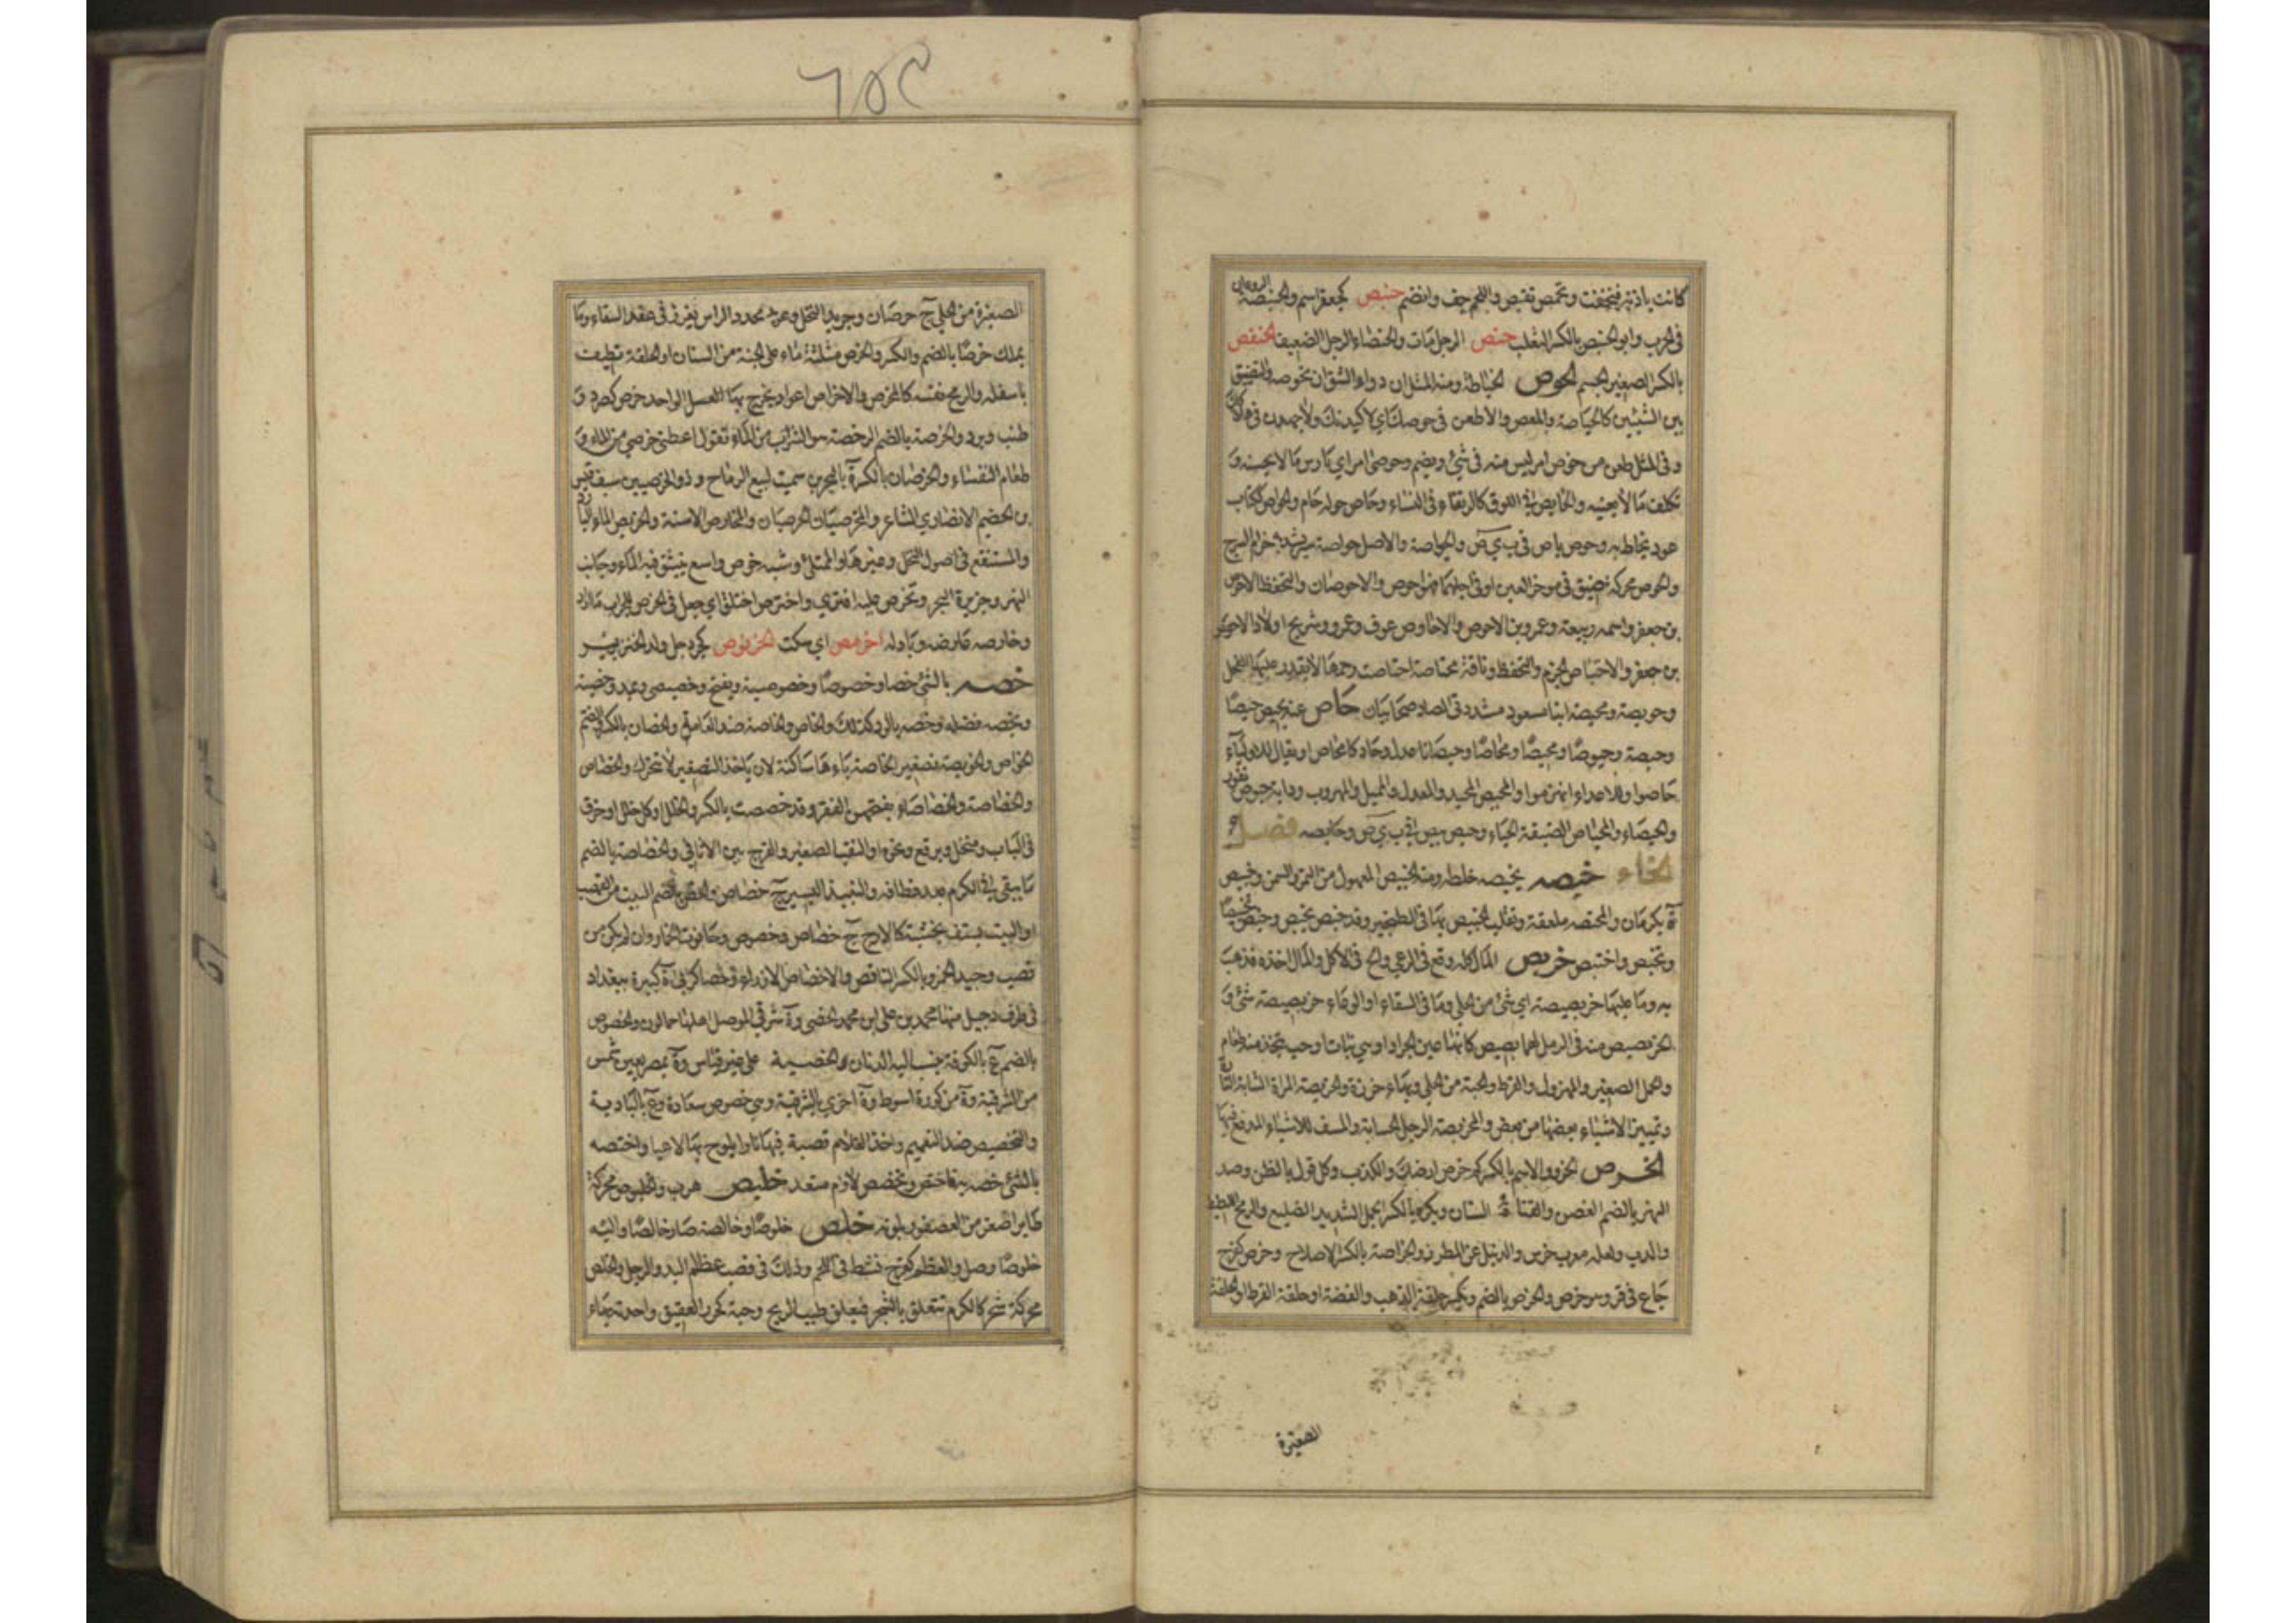 كانت باذنبر فنجففت وتحمص تقبض واللحم جف وانضم حنبص كجعفر اسم والحنبصة الروغان
في الحرب وابو الحنبص بالكسر الثعلب حنص الرجل مات والحنصاء الرجل الضعيف الحنفص
بالكسر الصغير الجسم الحوص الخياطة ومنه المثل ان دواء الشق ان تحوصه والتضييق
بين الشيئين كالحياصة والمعص ولاطعن في حوصك اي لاكيدنك ولاجهدن في هلاكك
وفي المثل طعن من حوص امر ليس منه في شيء ويضم وحوصى امراي مارس ما لا يحسنه و
تكلف ما لا يعنيه والحايص في النوق كالرتقاء في النساء وحاص حوله حام والحواص ككتاب
عود يخاط به وحوص باص في ب ي ص والحواصة والاصل حواصة سير يشد به حزام السرج
والحوص محركة ضيق في موخر العين او في احداهما فهو احوص والاحوصان والتحفظ الاحوص
بن جعفر واسمه ربيعة وعمرو بن الاحوص والاحاوص عوف وعمرو وشريح اولاد الاحوص
بن جعفر والاحتياص الحزم والتحفظ وناقة محتاصة احتاصت رحمها لا يقدر عليها الفحل
وحويصة ومحيصة ابنا مسعود مشددتي الصاد صحابيان حاص عنه يحيص حيصا
وحيصة وحيوصا ومحيصا ومحاصا وحيصانا عدل وحاد كانحاص او يقال للاولياء
حاصوا وللاعداء انهزموا والمحيص المحيد والمعدل والمميل والمهرب ودابة حيوص نفور
والحيصاء والمحياص الضيقة الحياء وحيص بيص في ب ي ص وحايصه فصل
الخاء خبصه يخبصه خلطه ومنه الخبيص المعمول من التمر والسمن وخبيص
ة بكرمان والمخبصة ملعقة وتقلب الخبيص بها في الطنجير وقد خبص يخبص وخبص تخبيصا
وتخبص واختبص خربص المال كله وقع في الرعي والح في الاكل والمال اخذه فذهب
به وما عليها خربصيصة اي شيء من الحلي وما في السقاء او الوعاء خربصيصة شيء و
الخربصيص هنة في الرمل لها بصيص كانها عين الجراد او هي نبات له حب يتخذ منه طعام
والجمل الصغير والمهزول والقرط والحبة من الحلي وبهاء خرزة والخربصة المراة الشابة التارة
وتمييز الاشياء بعضها من بعض والمخربصة الرجل الحسابة والمسف للاشياء المدقع فيها
الخرص الحزر والاسم بالكسر كم خرص ارضك والكذب وكل قول بالظن وسد
النهر بالضم الغصن والقناة السنان ويكسر وبالكسر الجمل الشديد الضليع والرمح اللطيف
والدب ولعله معرب خرس والزنبيل عن المطرز والخراصة بالكسر الاصلاح وخرص كفرح
جاع في قر وهو خرص والخرص بالضم ويكسر حلقة الذهب والفضة او حلقة القرط او الحلقة
الصغيرة
٦٥٩
الصغيرة من الحلي ج خرصان وجريد النخل وعويد محدد الراس يغرز في عقد السقاء وما
يملك خرصا بالضم والكسر والخرص مثلثة ما على الجبة من السنان او الحلقة تطيف
باسفله والرمح نفسه كالمخرص والاخراص اعواد يخرج بها العسل الواحد خرص كصرد و
طنب وبرد والخرصة بالضم الرخصة والشراب من الماء تقول اعطني خرصي من الماء و
طعام النفساء والخرصان بالكسر ة بالبحرين سميت لبيع الرماح وذو الخرصين سيف قيس
بن الخطيم الانصاري الشاعر والخرصيان الحرصيان والمخارص الاسنة والخريص الماء البارد
والمستنقع في اصول النخل وغيرها والممتلي وشبه حوض واسع ينبثق فيه الماء وجانب
النهر وجزيرة البحر وتخرص عليه افترى واخترص اختلق اي جعل في الخرص للجراب ما اراد
وخارصه عارضه وبادله اخرمص اي سكت الخرنوص كجردحل ولد الخنزير
خصه بالشيء خصا وخصوصا وخصوصية ويفتح وخصيصى ويمد وخصية
وتخصه فضله وخصه بالود كذلك والخاص والخاصة ضد العامة والخصان بالكسر والضم
الخواص والخويصة تصغير الخاصة ياءها ساكنة لان ياء التصغير لا تتحرك والخصاص
والخصاصة والخصاصاء بفتحهن الفقر وقد خصصت بالكسر والخلل او كل خلل او خرق
في الباب ومنخل وبرقع ونحوه او الثقب الصغير والفرج بين الاثافي والخصاصة بالضم
ما يبقى في الكرم بعد قطافه والنبيذ اليسير ج خصاص والخص بالضم البيت من القصب
او البيت يسقف بخشبة كالازج ج خصاص وخصوص وحانوت الخمار وان لم يكن من
قصب وجيد الخمر وبالكسر الناقص والاخصاص الازراء وخصا كربى ة كبيرة ببغداد
في طرف دجيل منها محمد بن علي ابن محمد الخصي وة شرقي الموصل اهلها جمالون والخصوص
بالضم ع بالكوفة ينسب اليه الدنان الخصية على غير قياس وة بمصر بعين شمس
من الشرقية وة من كورة اسيوط وة اخرى بالشرقية وهي خصوص سعادة وع بالبادية
والتخصيص ضد التعميم واخذ الغلام قصبة فيها نار يلوح بها لاعبا واختصه
بالشيء خصه به فاختص وتخصص لازم متعد خلبص هرب والخلبوص محركة
طاير اصغر من العصفور بلونه خلص خلوصا وخالصة صار خالصا واليه
خلوصا وصل والعظم كفرح نشط في اللحم وذلك في قصب عظام اليد والرجل والخلص
محركة شجر كالكرم يتعلق بالشجر فيعلو طيب الريح وحبه كخرز العقيق واحدته بهاء